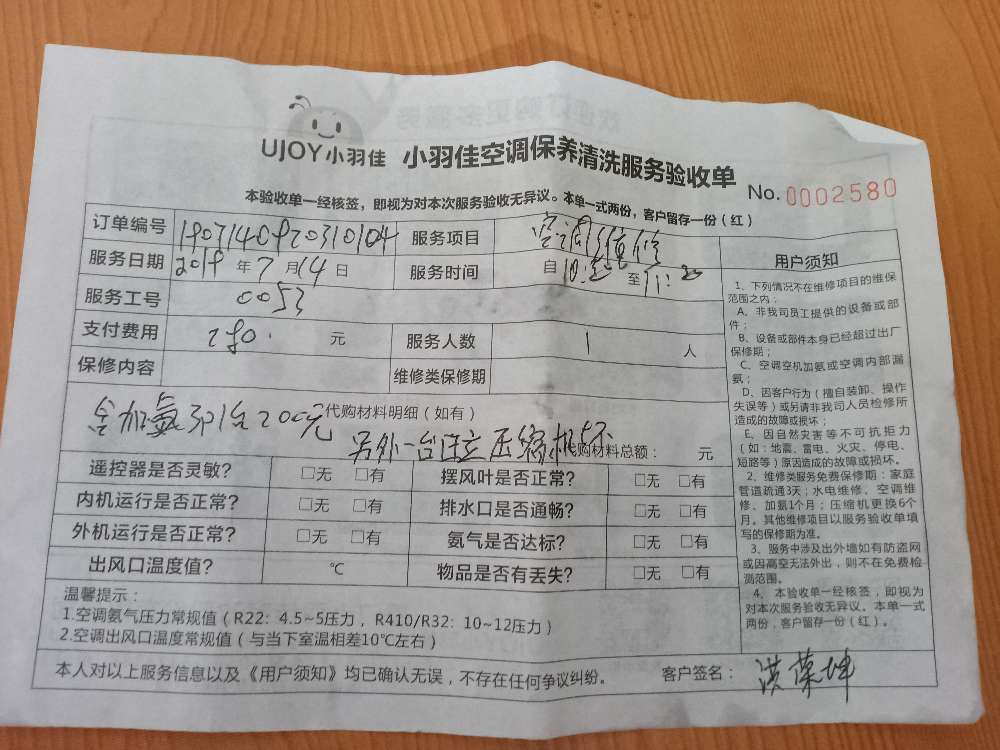 UJOY小羽佳 小羽佳空调保养清洗服务验收单
No.0002580
本验收单一经核签，即视为对本次服务验收无异议。本单一式两份，客户留存一份（红）
订单编号 服务项目 空调维修
服务日期 2019年7月14日 服务时间 自 至
服务工号 0053
支付费用 280. 元 服务人数 1 人
保修内容 维修类保修期
代购材料明细（如有）
含加氨 200元
另外一台 压缩机坏 代购材料总额： 元
遥控器是否灵敏？ □无 □有 摆风叶是否正常？ □无 □有
内机运行是否正常？ □无 □有 排水口是否通畅？ □无 □有
外机运行是否正常？ □无 □有 氨气是否达标？ □无 □有
出风口温度值？ ℃ 物品是否有丢失？ □无 □有
温馨提示：
1.空调氨气压力常规值（R22：4.5~5压力，R410/R32：10~12压力）
2.空调出风口温度常规值（与当下室温相差10℃左右）
本人对以上服务信息以及《用户须知》均已确认无误，不存在任何争议纠纷。 客户签名：
用户须知
1、下列情况不在维修项目的维保
范围之内：
A、非我司员工提供的设备或部
件；
B、设备或部件本身已经超过出厂
保修期；
C、空调空机加氨或空调内部漏
氨；
D、因客户行为（擅自装卸、操作
失误等）或另请非我司人员检修所
造成的故障或损坏；
E、因自然灾害等不可抗拒力
（如：地震、雷电、火灾、停电、
短路等）原因造成的故障或损坏。
2、维修类服务免费保修期：家庭
管道疏通3天；水电维修、空调维
修、加氨1个月；压缩机更换6个
月。其他维修项目以服务验收单填
写的保修期为准。
3、服务中涉及出外墙如有防盗网
或因高空无法外出，则不在免费检
测范围。
4、本验收单一经核签，即视为
对本次服务验收无异议。本单一式
两份，客户留存一份（红）。